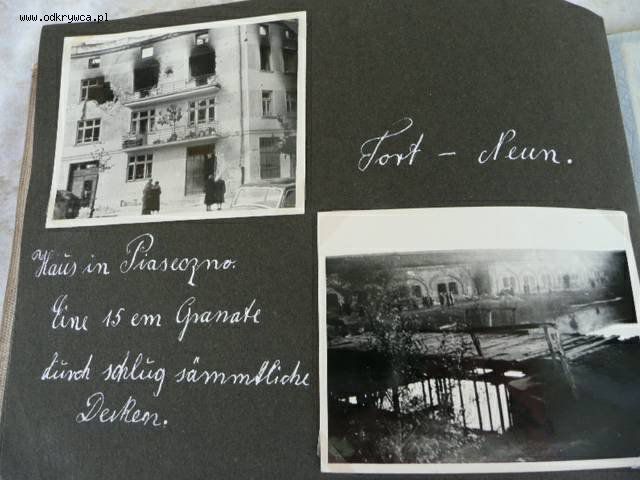 www.odkrywca.pl
Fort - Neun.
Haus in Piaseczno.
Eine 15 cm Granate
durch schlug sämmtliche
Decken.